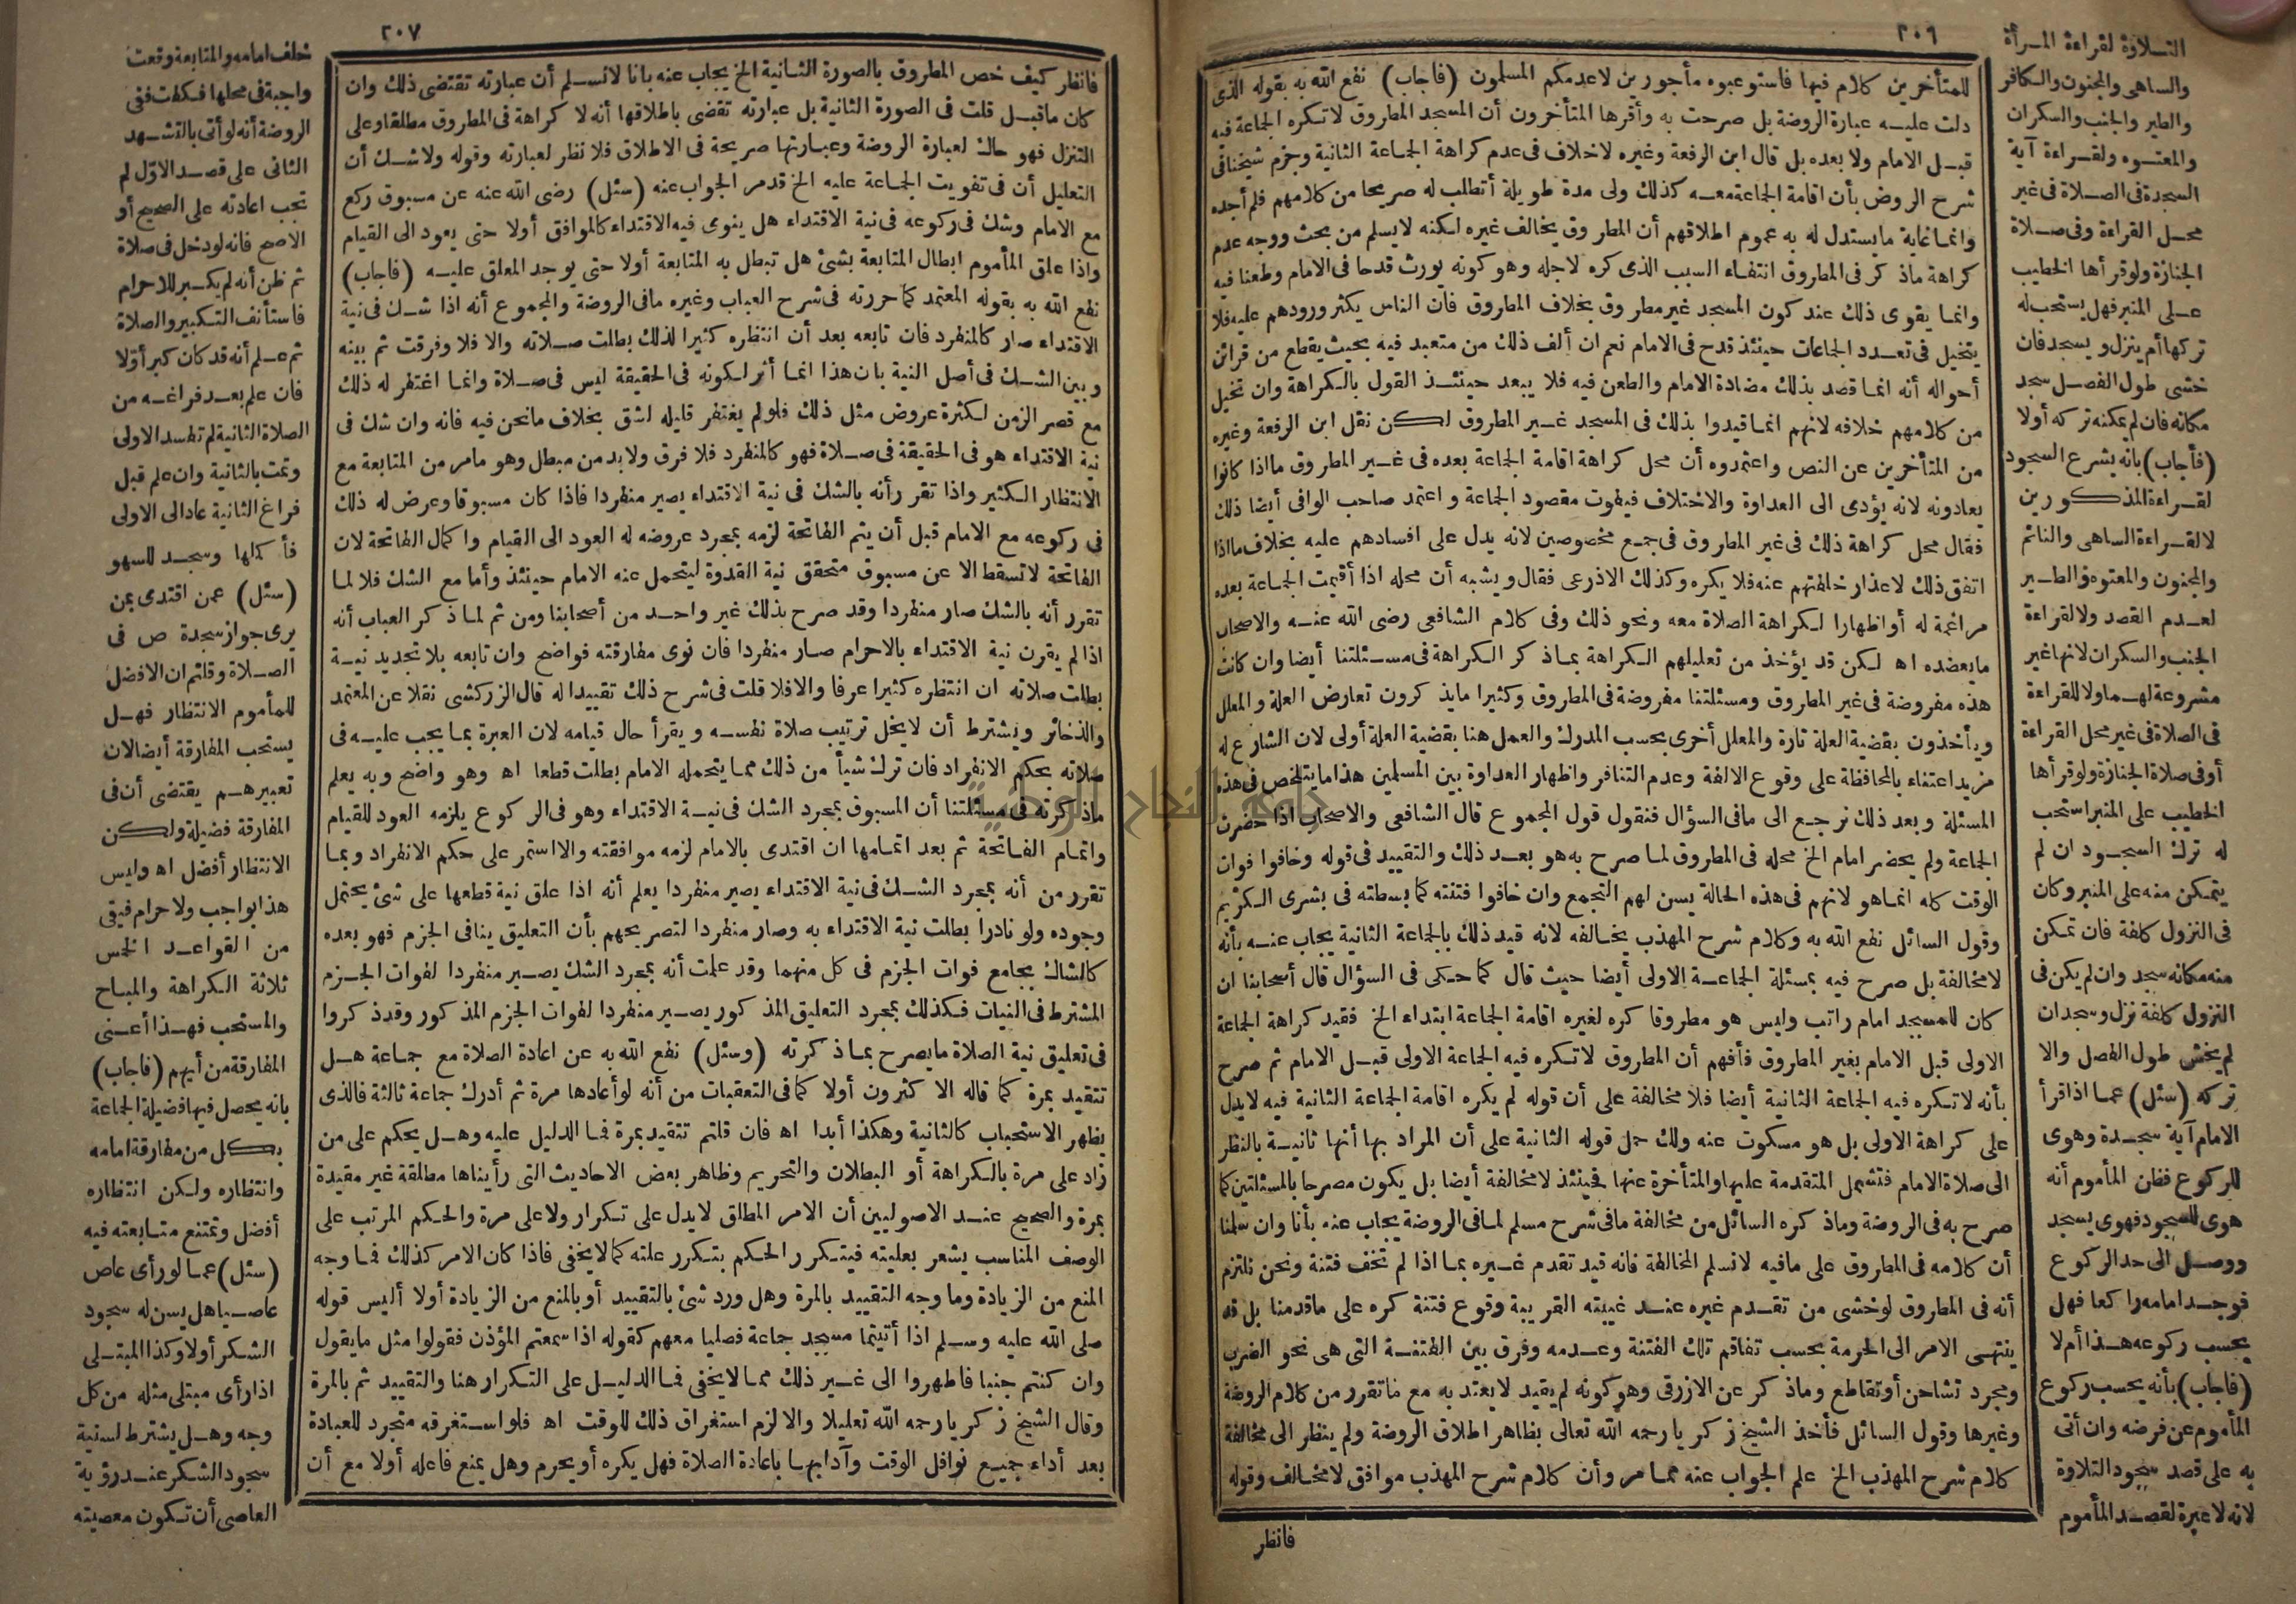 ٢٠٦
للمتأخرين كلام فيها فاستوعبوه مأجورين لاعدمكم المسلمون (فأجاب) نفع الله به بقوله الذى
دلت عليه عبارة الروضة بل صرحت به وأقرها المتأخرون أن المسجد المطروق لا تكره الجماعة فيه
قبل الامام ولا بعده بل قال ابن الرفعة وغيره لا خلاف فى عدم كراهة الجماعة الثانية وجزم شيخنا فى
شرح الروض بأن اقامة الجماعة معه كذلك ولى مدة طويلة أتطلب له صريحا من كلامهم فلم أجده
وانما غاية ما يستدل له به عموم اطلاقهم أن المطروق يخالف غيره لكنه لا يسلم من بحث ووجه عدم
كراهة ماذكر فى المطروق انتفاء السبب الذى كره لاجله وهو كونه يورث قدحا فى الامام وطعنا فيه
وانما يقوى ذلك عند كون المسجد غير مطروق بخلاف المطروق فان الناس يكثر ورودهم عليه فلا
يتخيل فى تعدد الجماعات حينئذ قدح فى الامام نعم ان ألف ذلك من متعبد فيه بحيث يقطع من قرائن
أحواله أنه انما قصد بذلك مضادة الامام والطعن فيه فلا يبعد حينئذ القول بالكراهة وان تخيل
من كلامهم خلافه لانهم انما قيدوا بذلك فى المسجد غير المطروق لكن نقل ابن الرفعة وغيره
من المتأخرين عن النص واعتمدوه أن محل كراهة اقامة الجماعة بعده فى غير المطروق ما اذا كانوا
يعادونه لانه يؤدى الى العداوة والاختلاف فيفوت مقصود الجماعة واعتمد صاحب الوافى أيضا ذلك
فقال محل كراهة ذلك فى غير المطروق فى جمع مخصوصين لانه يدل على افسادهم عليه بخلاف ما اذا
اتفق ذلك لاعذار خلفتهم عنه فلا يكره وكذلك الاذرعى فقال ويشبه أن محله اذا أقيمت الجماعة بعده
مراغمة له أو اظهارا لكراهة الصلاة معه ونحو ذلك وفى كلام الشافعى رضى الله عنه والاصحاب
ما يعضده اه لكن قد يؤخذ من تعليلهم الكراهة بماذكر الكراهة فى مسئلتنا أيضا وان كانت
هذه مفروضة فى غير المطروق ومسئلتنا مفروضة فى المطروق وكثيرا ما يذكرون تعارض العلة والمعلل
ويأخذون بقضية العلة تارة والمعلل أخرى بحسب المدرك والعمل هنا بقضية العلة أولى لان الشارع له
مزيد اعتناء بالمحافظة على وقوع الالفة وعدم التنافر واظهار العداوة بين المسلمين هذا ما يتلخص فى هذه
المسئلة وبعد ذلك نرجع الى مافى السؤال فنقول قول المجموع قال الشافعى والاصحاب اذا حضرت
الجماعة ولم يحضر امام الخ محله فى المطروق لما صرح به هو بعد ذلك والتقييد فى قوله وخافوا فوات
الوقت كله انما هو لانهم فى هذه الحالة يسن لهم التجمع وان خافوا فتنته كما بسطته فى بشرى الكريم
وقول السائل نفع الله به وكلام شرح المهذب يخالفه لانه قيد ذلك بالجماعة الثانية يجاب عنه بأنه
لا مخالفة بل صرح فيه بمسئلة الجماعة الاولى أيضا حيث قال كما حكى فى السؤال قال أصحابنا ان
كان للمسجد امام راتب وليس هو مطروقا كره لغيره اقامة الجماعة ابتداء الخ فقيد كراهة الجماعة
الاولى قبل الامام بغير المطروق فأفهم أن المطروق لا تكره فيه الجماعة الاولى قبل الامام ثم صرح
بأنه لا تكره فيه الجماعة الثانية أيضا فلا مخالفة على أن قوله لم يكره اقامة الجماعة الثانية فيه لا يدل
على كراهة الاولى بل هو مسكوت عنه ولك حمل قوله الثانية على أن المراد بها أنها ثانية بالنظر
الى صلاة الامام فتشمل المتقدمة عليها والمتأخرة عنها فحينئذ لا مخالفة أيضا بل يكون مصرحا بالمسئلتين كما
صرح به فى الروضة وماذكره السائل من مخالفة مافى شرح مسلم لمافى الروضة يجاب عنه بأنا وان سلمنا
أن كلامه فى المطروق على مافيه لا نسلم المخالفة فانه قيد تقدم غيره بما اذا لم تخف فتنة ونحن نلتزم
أنه فى المطروق لو خشى من تقدم غيره عند غيبته القريبة وقوع فتنة كره على ماقدمنا بل قد
ينتهى الامر الى الحرمة بحسب تفاقم تلك الفتنة وعدمه وفرق بين الفتنة التى هى نحو الضرب
ومجرد تشاحن أو تقاطع وماذكر عن الازرقى وهو كونه لم يقيد لا يعتد به مع ما تقرر من كلام الروضة
وغيرها وقول السائل فأخذ الشيخ زكريا رحمه الله تعالى بظاهر اطلاق الروضة ولم ينظر الى مخالفة
كلام شرح المهذب الخ علم الجواب عنه مما مر وأن كلام شرح المهذب موافق لا مخالف وقوله
فانظر
التلاوة لقراءة المرأة
والساهى والمجنون والكافر
والطير والجنب والسكران
والمعتوه ولقراءة آية
السجدة فى الصلاة فى غير
محل القراءة وفى صلاة
الجنازة ولو قرأها الخطيب
على المنبر فهل يستحب له
تركها أم ينزل ويسجد فان
خشى طول الفصل سجد
مكانه فان لم يمكنه تركه أولا
(فأجاب) بانه يشرع السجود
لقراءة المذكورين
لا لقراءة الساهى والنائم
والمجنون والمعتوه والطير
لعدم القصد ولا لقراءة
الجنب والسكران لانها غير
مشروعة لهما ولا للقراءة
فى الصلاة فى غير محل القراءة
أو فى صلاة الجنازة ولو قرأها
الخطيب على المنبر استحب
له ترك السجود ان لم
يتمكن منه على المنبر وكان
فى النزول كلفة فان تمكن
منه مكانه سجد وان لم يكن فى
النزول كلفة نزل وسجد ان
لم يخش طول الفصل والا
تركه (سئل) عما اذا قرأ
الامام آية سجدة وهوى
للركوع فظن المأموم أنه
هوى للسجود فهوى يسجد
ووصل الى حد الركوع
فوجد امامه راكعا فهل
يحسب ركوعه هذا أم لا
(فأجاب) بأنه يحسب ركوع
المأموم عن فرضه وان أتى
به على قصد سجود التلاوة
لانه لا عبرة لقصد المأموم
٢٠٧
فانظر كيف خص المطروق بالصورة الثانية الخ يجاب عنه بانا لا نسلم أن عبارته تقتضى ذلك وان
كان ماقبل قلت فى الصورة الثانية بل عبارته تقضى باطلاقها أنه لا كراهة فى المطروق مطلقا وعلى
التنزل فهو حاك لعبارة الروضة وعبارتها صريحة فى الاطلاق فلا نظر لعبارته وقوله ولا شك أن
التعليل أن فى تفويت الجماعة عليه الخ قد مر الجواب عنه (سئل) رضى الله عنه عن مسبوق ركع
مع الامام وشك فى ركوعه فى نية الاقتداء هل ينوى فيه الاقتداء كالموافق أولا حتى يعود الى القيام
واذا علق المأموم ابطال المتابعة بشئ هل تبطل به المتابعة أولا حتى يوجد المعلق عليه (فأجاب)
نفع الله به بقوله المعتمد كما حررته فى شرح العباب وغيره مافى الروضة والمجموع أنه اذا شك فى نية
الاقتداء صار كالمنفرد فان تابعه بعد أن انتظره كثيرا لذلك بطلت صلاته والا فلا وفرقت ثم بينه
وبين الشك فى أصل النية بان هذا انما أثر لكونه فى الحقيقة ليس فى صلاة وانما اغتفر له ذلك
مع قصر الزمن لكثرة عروض مثل ذلك فلو لم يغتفر قليله لشق بخلاف ما نحن فيه فانه وان شك فى
نية الاقتداء هو فى الحقيقة فى صلاة فهو كالمنفرد فلا فرق ولا بد من مبطل وهو مامر من المتابعة مع
الانتظار الكثير واذا تقرر أنه بالشك فى نية الاقتداء يصير منفردا فاذا كان مسبوقا وعرض له ذلك
فى ركوعه مع الامام قبل أن يتم الفاتحة لزمه بمجرد عروضه له العود الى القيام واكمال الفاتحة لان
الفاتحة لا تسقط الا عن مسبوق متحقق نية القدوة ليتحمل عنه الامام حينئذ وأما مع الشك فلا لما
تقرر أنه بالشك صار منفردا وقد صرح بذلك غير واحد من أصحابنا ومن ثم لما ذكر العباب أنه
اذا لم يقرن نية الاقتداء بالاحرام صار منفردا فان نوى مفارقته فواضح وان تابعه بلا تجديد نية
بطلت صلاته ان انتظره كثيرا عرفا والا فلا قلت فى شرح ذلك تقييدا له قال الزركشى نقلا عن المعتمد
والذخائر ويشترط أن لا يخل ترتيب صلاة نفسه ويقرأ حال قيامه لان العبرة بما يجب عليه فى
صلاته بحكم الانفراد فان ترك شيأ من ذلك مما يتحمله الامام بطلت قطعا اه وهو واضح وبه يعلم
ماذكرته فى مسئلتنا أن المسبوق بمجرد الشك فى نية الاقتداء وهو فى الركوع يلزمه العود للقيام
واتمام الفاتحة ثم بعد اتمامها ان اقتدى بالامام لزمه موافقته والا استمر على حكم الانفراد وبما
تقرر من أنه بمجرد الشك فى نية الاقتداء يصير منفردا يعلم أنه اذا علق نية قطعها على شئ يحتمل
وجوده ولو نادرا بطلت نية الاقتداء به وصار منفردا لتصريحهم بأن التعليق ينافى الجزم فهو بعده
كالشاك بجامع فوات الجزم فى كل منهما وقد علمت أنه بمجرد الشك يصير منفردا لفوات الجزم
المشترط فى النيات فكذلك بمجرد التعليق المذكور يصير منفردا لفوات الجزم المذكور وقد ذكروا
فى تعليق نية الصلاة ما يصرح بماذكرته (وسئل) نفع الله به عن اعادة الصلاة مع جماعة هل
تتقيد بمرة كما قاله الاكثرون أولا كما فى التعقبات من أنه لو أعادها مرة ثم أدرك جماعة ثالثة فالذى
يظهر الاستحباب كالثانية وهكذا أبدا اه فان قلتم تتقيد بمرة فما الدليل عليه وهل يحكم على من
زاد على مرة بالكراهة أو البطلان والتحريم وظاهر بعض الاحاديث التى رأيناها مطلقة غير مقيدة
بمرة والصحيح عند الاصوليين أن الامر المطلق لا يدل على تكرار ولا على مرة والحكم المرتب على
الوصف المناسب يشعر بعليته فيتكرر الحكم بتكرر علته كما لا يخفى فاذا كان الامر كذلك فما وجه
المنع من الزيادة وما وجه التقييد بالمرة وهل ورد شئ بالتقييد أو بالمنع من الزيادة أولا أليس قوله
صلى الله عليه وسلم اذا أتيتما مسجد جماعة فصليا معهم كقوله اذا سمعتم المؤذن فقولوا مثل ما يقول
وان كنتم جنبا فاطهروا الى غير ذلك مما لا يخفى فما الدليل على التكرار هنا والتقييد ثم بالمرة
وقال الشيخ زكريا رحمه الله تعليلا والا لزم استغراق ذلك للوقت اه فلو استغرقه متجرد للعبادة
بعد أداء جميع نوافل الوقت وآدابها باعادة الصلاة فهل يكره أو يحرم وهل يمنع فاعله أولا مع أن
خلف امامه والمتابعة وقعت
واجبة فى محلها فكفت ففى
الروضة أنه لو أتى بالتشهد
الثانى على قصد الاول لم
تجب اعادته على الصحيح أو
الاصح فانه لو دخل فى صلاة
ثم ظن أنه لم يكبر للاحرام
فاستأنف التكبير والصلاة
ثم علم أنه قد كان كبر أولا
فان علم بعد فراغه من
الصلاة الثانية لم تفسد الاولى
وتمت بالثانية وان علم قبل
فراغ الثانية عاد الى الاولى
فأكملها وسجد للسهو
(سئل) عمن اقتدى بمن
يرى جواز سجدة ص فى
الصلاة وقلتم ان الافضل
للمأموم الانتظار فهل
يستحب المفارقة أيضا لان
تعبيرهم يقتضى أن فى
المفارقة فضيلة ولكن
الانتظار أفضل اه وليس
هذا بواجب ولا حرام فبقى
من القواعد الخمس
ثلاثة الكراهة والمباح
والمستحب فهذا أعنى
المفارقة من أيهم (فأجاب)
بانه يحصل فيها فضيلة الجماعة
بكل من مفارقة امامه
وانتظاره ولكن انتظاره
أفضل وتمتنع متابعته فيه
(سئل) عما لو رأى عاص
عاصيا هل يسن له سجود
الشكر أولا وكذا المبتلى
اذا رأى مبتلى مثله من كل
وجه وهل يشترط لسنية
سجود الشكر عند رؤية
العاصى أن تكون معصيته
جامعة النجاح الوطنية